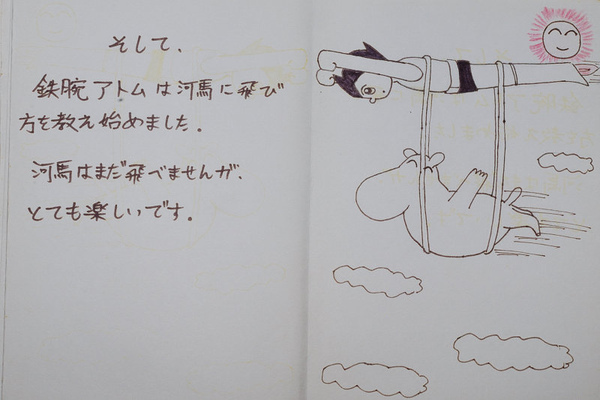 そして、
鉄腕アトムは河馬に飛び
方を教え始めました。
河馬はまだ飛べませんが、
とても楽しいです。